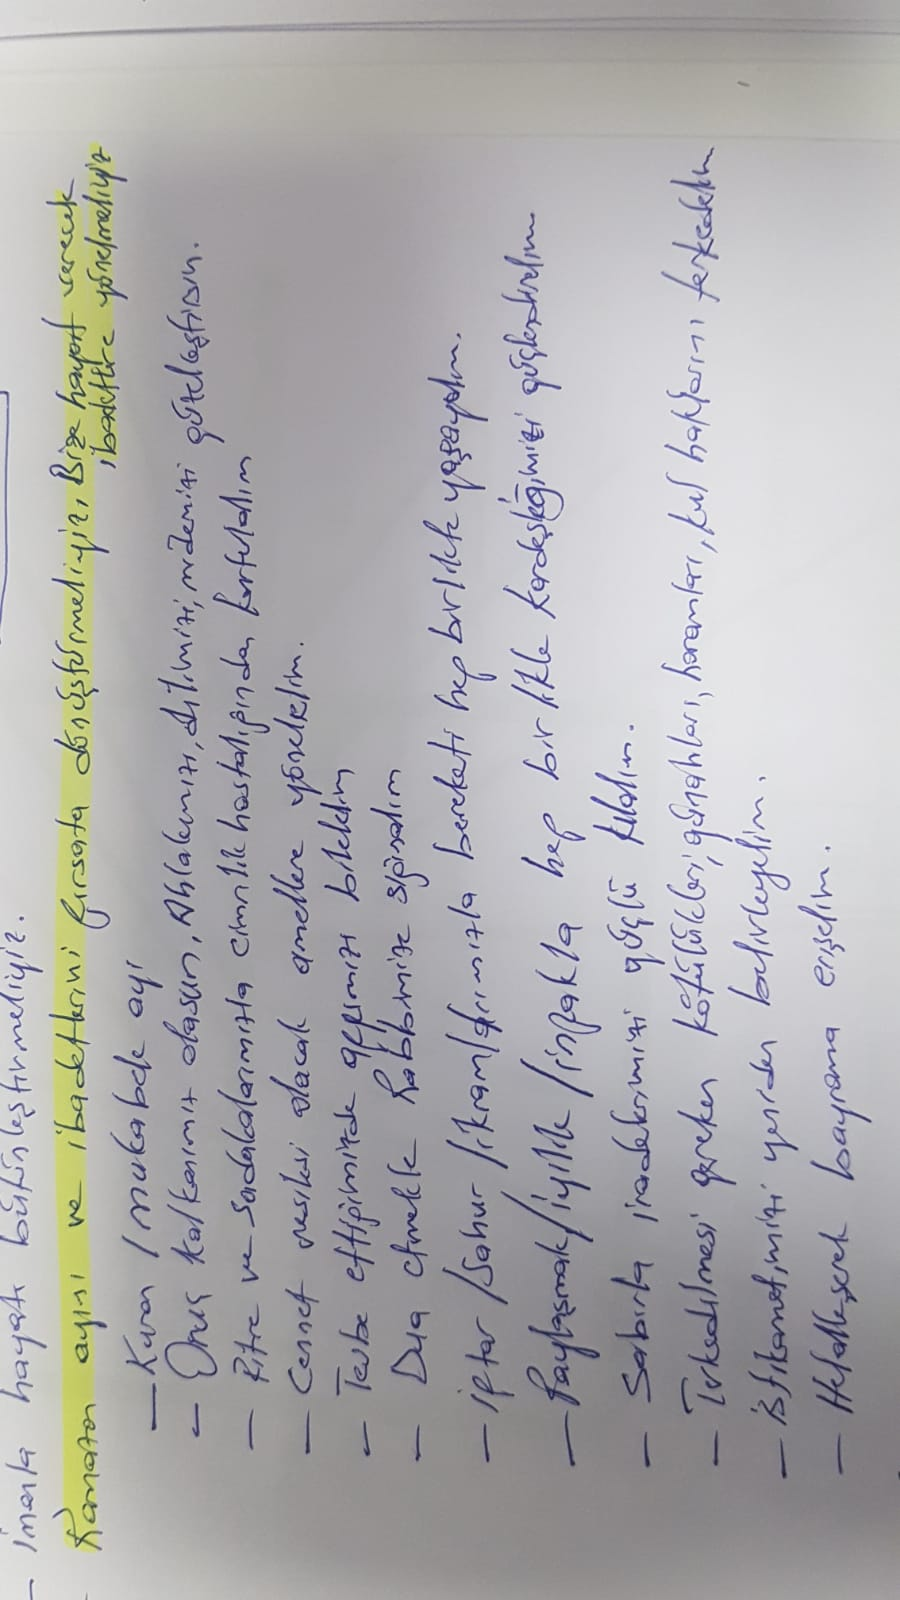 - İmanla hayatı bütünleştirmeliyiz.
- Ramazan ayını ve ibadetlerini fırsata dönüştürmeliyiz, Bize hayat verecek
ibadetlere yönelmeliyiz
- Kuran / mukabele ayı
- Oruç kalkanımız olasun, Ahlakımızı, dilimizi, midemizi güzelleştirsin.
- Fitre ve sadakalarımızla cimrilik hastalığından kurtulalım
- Cennet vesilesi olacak amellere yönelelim.
- Tevbe ettiğimizde affımızı bilelim
- Dua etmekle Rabbimize sığınalım
- İftar / Sahur / ikramlarımızla bereketi hep birlikte yaşayalım.
- Paylaşmak / iyilik / infakla hep birlikte kardeşliğimizi güçlendirelim
- Sabırla iradelerimizi güçlü kılalım.
- Terkedilmesi gereken kötülükleri, günahları, haramları, kul haklarını terkedelim
- İstikametimizi yeniden belirleyelim.
- Helalleşerek bayrama erişelim.